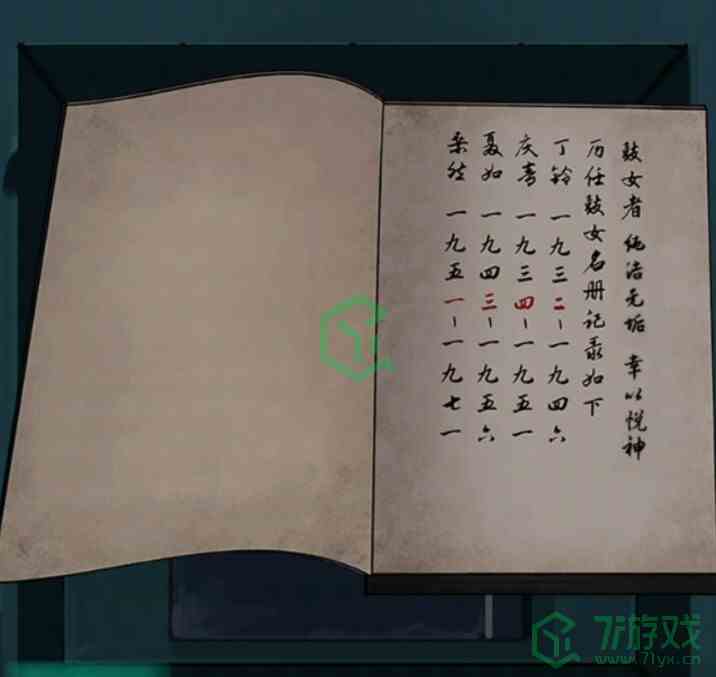 鼓女者 纯洁无垢 幸以悦神
历任鼓女名册记录如下
丁铃 一九三二-一九四六
庆 一九三四-一九五一
聂如 一九四三-一九五六
一九五一-一九七一
7I游戏
www.7lyx.cn